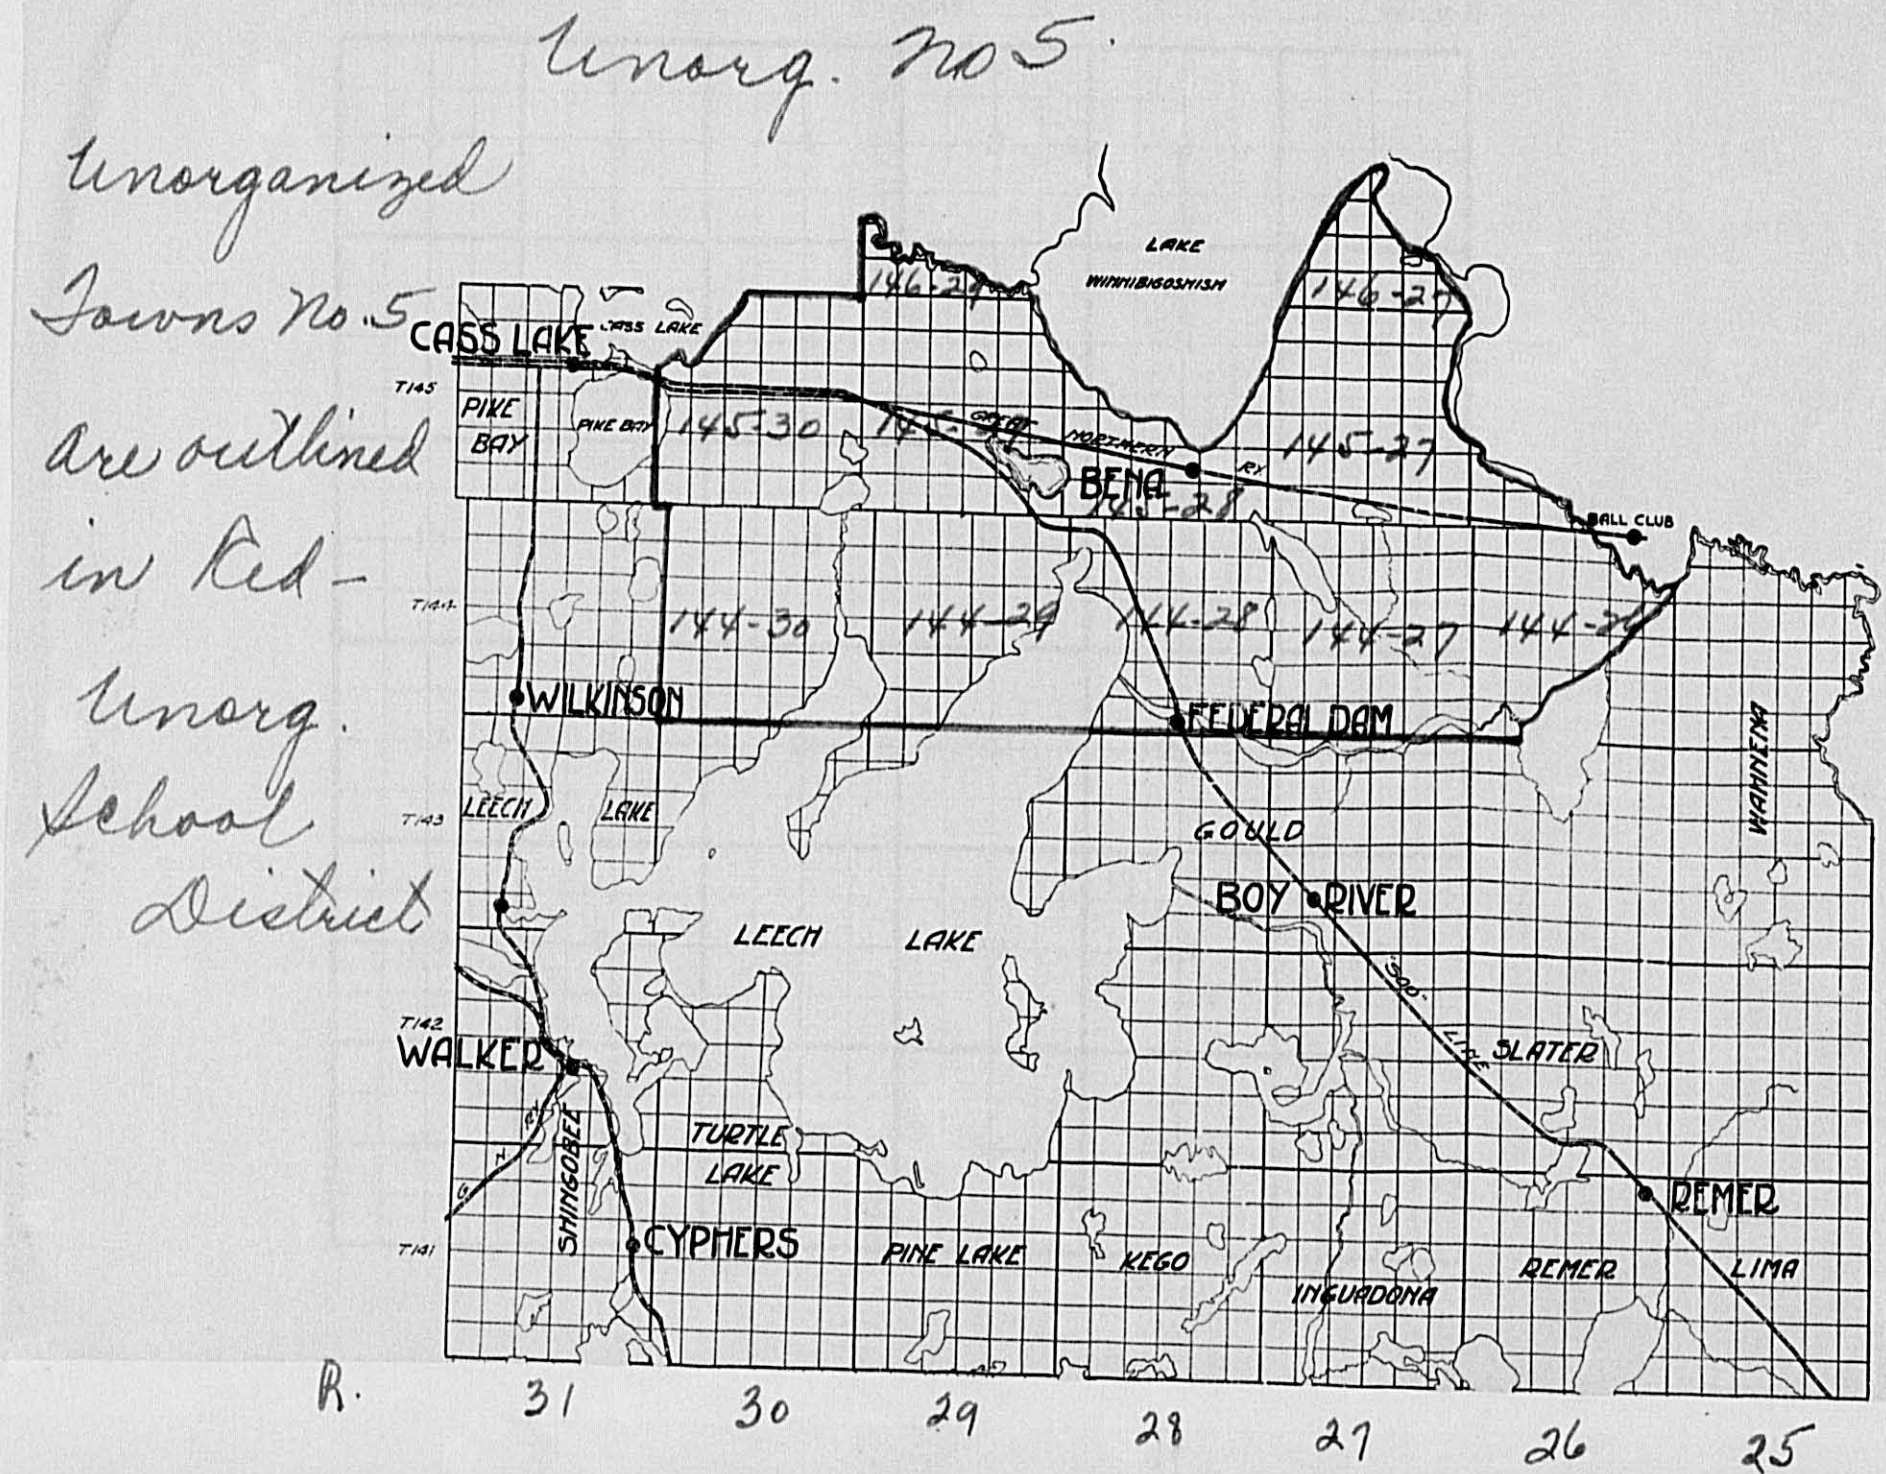 Unorg. No 5.
Unorganized
Towns No. 5
are outlined
in Red -
Unorg.
School
District
LAKE
WINNIBIGOSHISH
146-29
146-27
CASS LAKE
CASS LAKE
T145
PIKE
BAY
PIKE BAY
145-30
145-29
GREAT NORTHERN RY
145-27
BENA
145-28
BALL CLUB
T144
144-30
144-29
144-28
144-27
144-26
WILKINSON
FEDERAL DAM
WAHNENA
T143
LEECH LAKE
GOULD
BOY RIVER
LEECH LAKE
"SOO" LINE
T142
WALKER
SLATER
G. N. RY
SHINGOBEE
TURTLE
LAKE
REMER
T141
CYPHERS
PINE LAKE
KEGO
INGUADONA
REMER
LIMA
R. 31 30 29 28 27 26 25